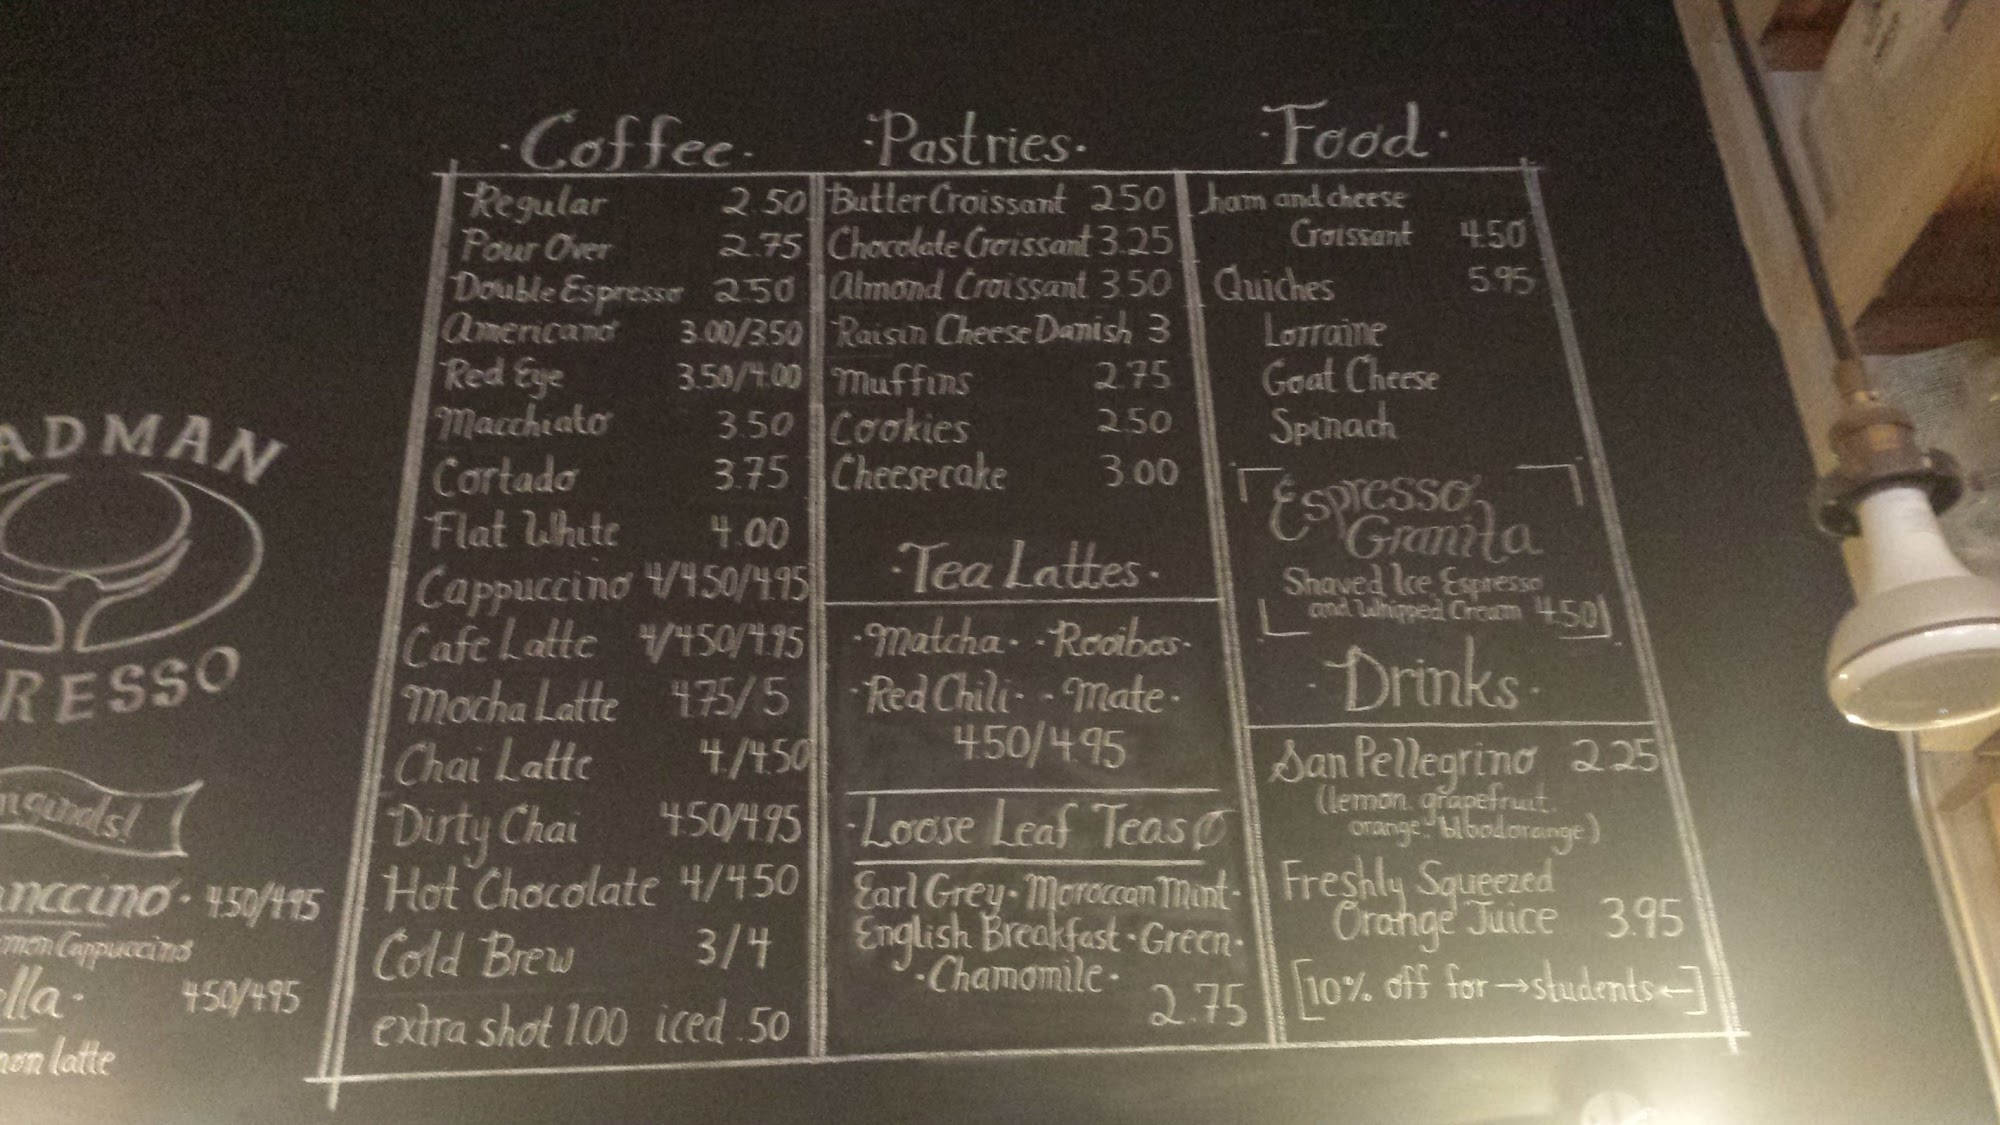 ADMAN
RESSO
4.50/4.95
4.50/4.95
latte
· Coffee ·
Regular 2.50
Pour Over 2.75
Double Espresso 2.50
Americano 3.00/3.50
Red Eye 3.50/4.00
Macchiato 3.50
Cortado 3.75
Flat White 4.00
Cappuccino 4/4.50/4.95
Cafe Latte 4/4.50/4.95
Mocha Latte 4.75/5
Chai Latte 4./4.50
Dirty Chai 4.50/4.95
Hot Chocolate 4/4.50
Cold Brew 3/4
extra shot 1.00 iced .50
· Pastries ·
Butter Croissant 2.50
Chocolate Croissant 3.25
Almond Croissant 3.50
Raisin Cheese Danish 3
Muffins 2.75
Cookies 2.50
Cheesecake 3.00
· Tea Lattes ·
· Matcha · · Rooibos ·
· Red Chili · · Mate ·
4.50/4.95
· Loose Leaf Teas
Earl Grey · Moroccan Mint ·
English Breakfast · Green ·
· Chamomile ·
2.75
· Food ·
ham and cheese
Croissant 4.50
Quiches 5.95
Lorraine
Goat Cheese
Spinach
Espresso
Granita
Shaved Ice, Espresso
and Whipped Cream 4.50
· Drinks ·
San Pellegrino 2.25
(lemon, grapefruit,
orange, bloodorange)
Freshly Squeezed
Orange Juice 3.95
[10% off for → students ←]